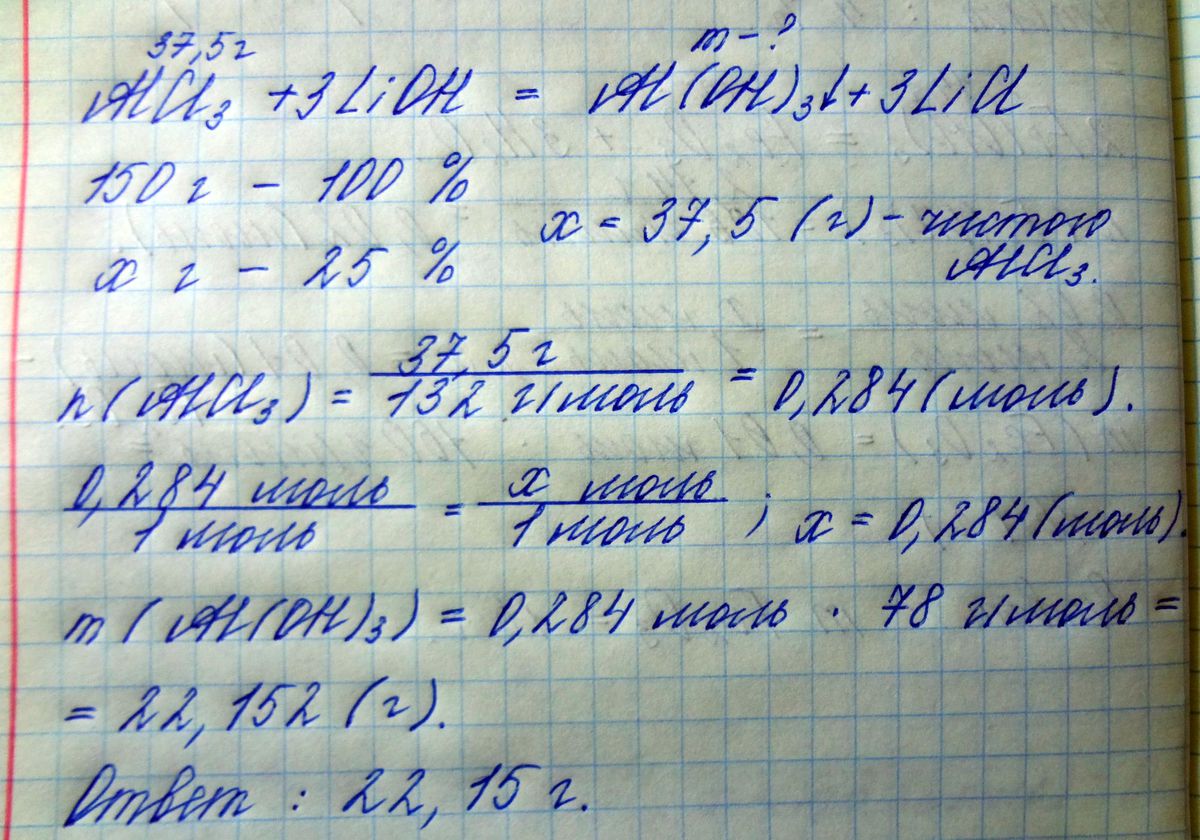 37,5 г m - ?
AlCl₃ + 3LiOH = Al(OH)₃↓ + 3LiCl
150 г - 100 %
x г - 25 %
x = 37,5 (г) - чистого
AlCl₃.
n(AlCl₃) = 37,5 г / 132 г/моль = 0,284 (моль).
0,284 моль / 1 моль = x моль / 1 моль ; x = 0,284 (моль).
m(Al(OH)₃) = 0,284 моль · 78 г/моль =
= 22,152 (г).
Ответ : 22,15 г.